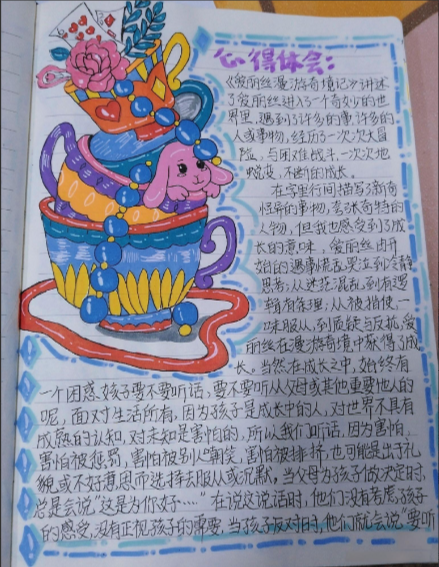 心得体会:
《爱丽丝漫游奇境记》讲述
了爱丽丝进入一个奇妙的世
界里,遇到了许多的事,许多的
人或事物,经历了一次次大冒
险,与困难战斗,一次次地
蜕变,不断的成长。
在字里行间描写了新奇
怪异的事物,夸张奇特的
人物,但我也感受到了成
长的意味,爱丽丝由开
始的遇事慌乱哭泣到冷静
思考;从迷茫混乱,到有逻
辑有条理;从被指使,一
味服从,到质疑与反抗,爱
丽丝在漫游奇境中获得了成
长。当然,在成长之中,始终有
一个困惑:孩子要不要听话,要不要听从父母或其他重要他人的
呢,面对生活所有,因为孩子是成长中的人,对世界不具有
成熟的认知,对未知是害怕的,所以我们听话,因为害怕,
害怕被惩罚,害怕被别人嘲笑,害怕被排挤,也可能是出于礼
貌或不好意思而选择去服从或沉默。当父母为孩子做决定时,
总是会说"这是为你好……"在说这说话时,他们没有考虑孩子
的感受,没有正视孩子的需要,当孩子反对时,他们就会说"要听